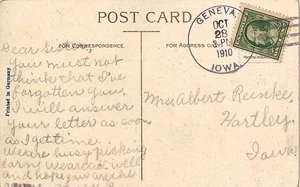 POST CARD
FOR CORRESPONDENCE.
FOR ADDRESS ONLY
GENEVA
OCT
28
3 PM
1910
IOWA.
Printed in Germany
Dear
you must not
think that I've
forgotten you,
I will answer
your letter as soon
as I get time.
We are busy picking
corn, weather well
and hope you are the
Mrs Albert Reinke,
Hartley,
Iowa